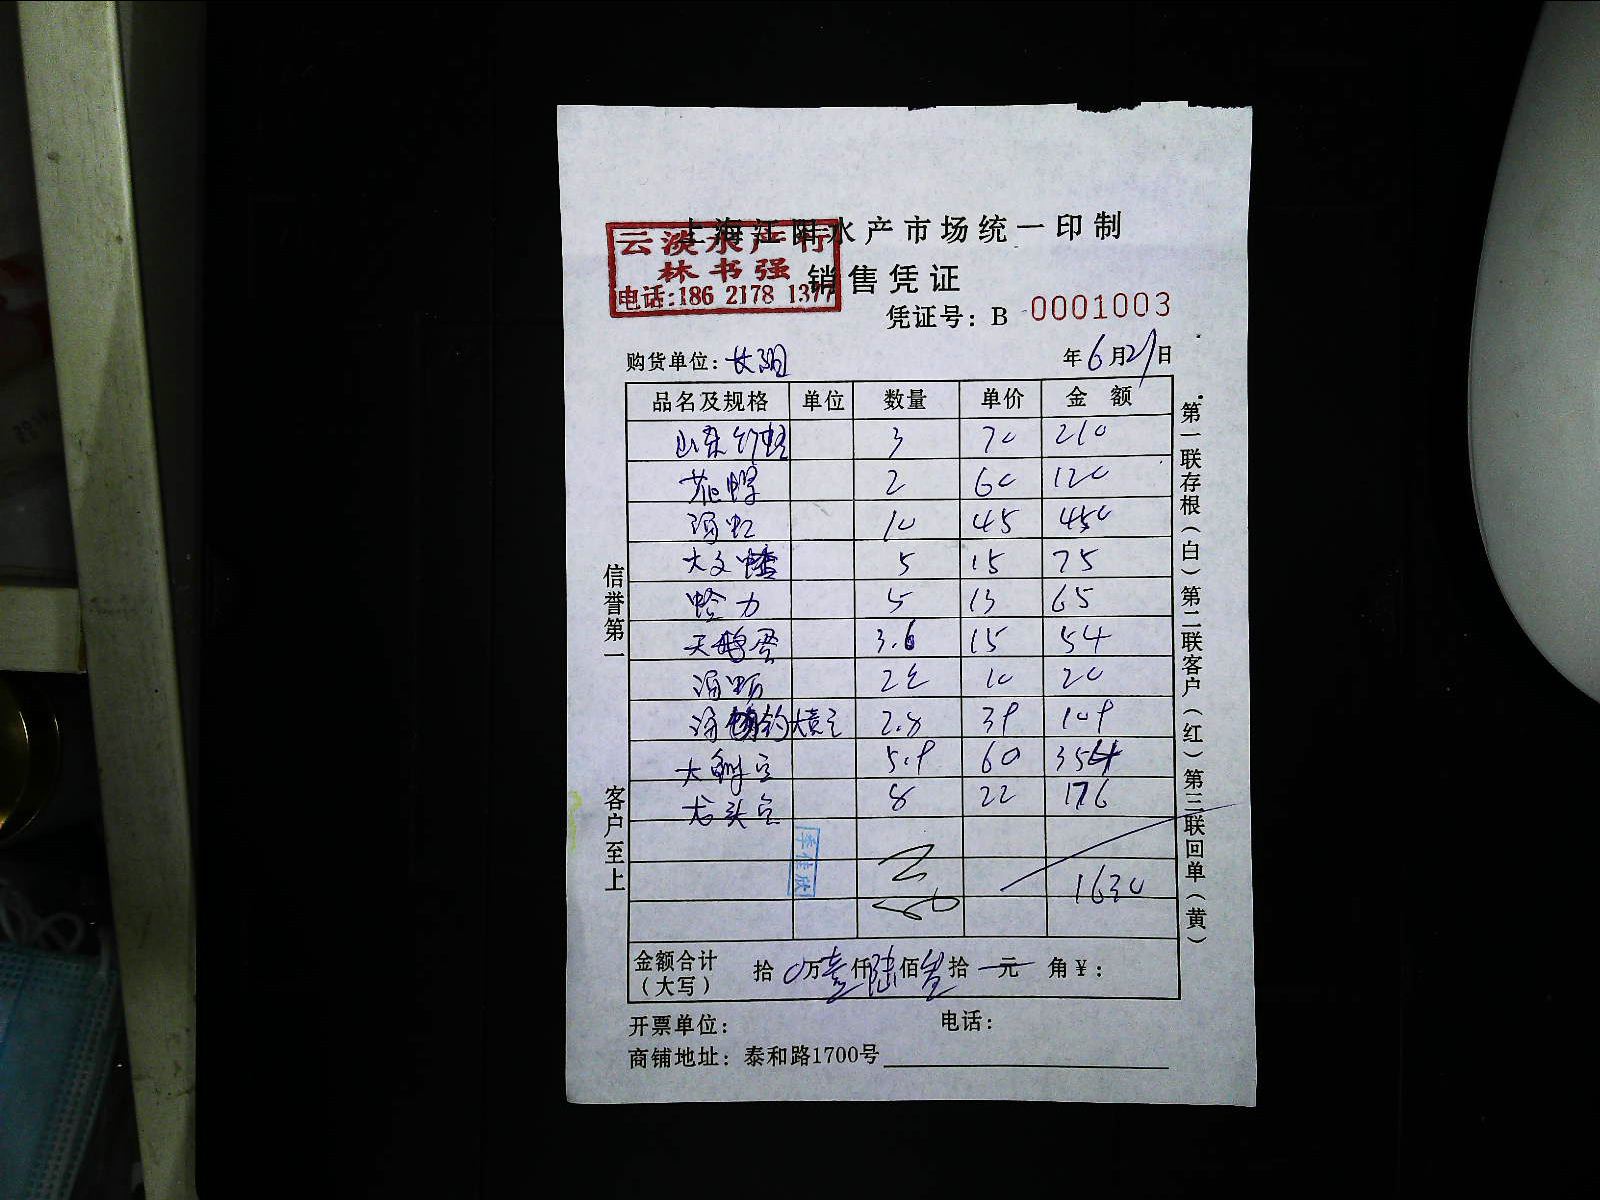 上海江阳水产市场统一印制
云淡水产行
林书强
电话:186 2178 1377
销售凭证
凭证号: B 0001003
购货单位:
年6月21日
品名及规格 单位 数量 单价 金额
山东 3 70 210
花 2 60 120
10 45 450
大文蛤 5 15 75
蛤力 5 13 65
天鹅蛋 3.6 15 54
10 20
2.8 39 109
大 5.9 60 354
龙头 8 22 176
1630
李佳欣
金额合计
(大写)
拾0万壹仟陆佰叁拾一元 角¥:
开票单位: 电话:
商铺地址: 泰和路1700号
信誉第一
客户至上
第一联存根(白)第二联客户(红)第三联回单(黄)